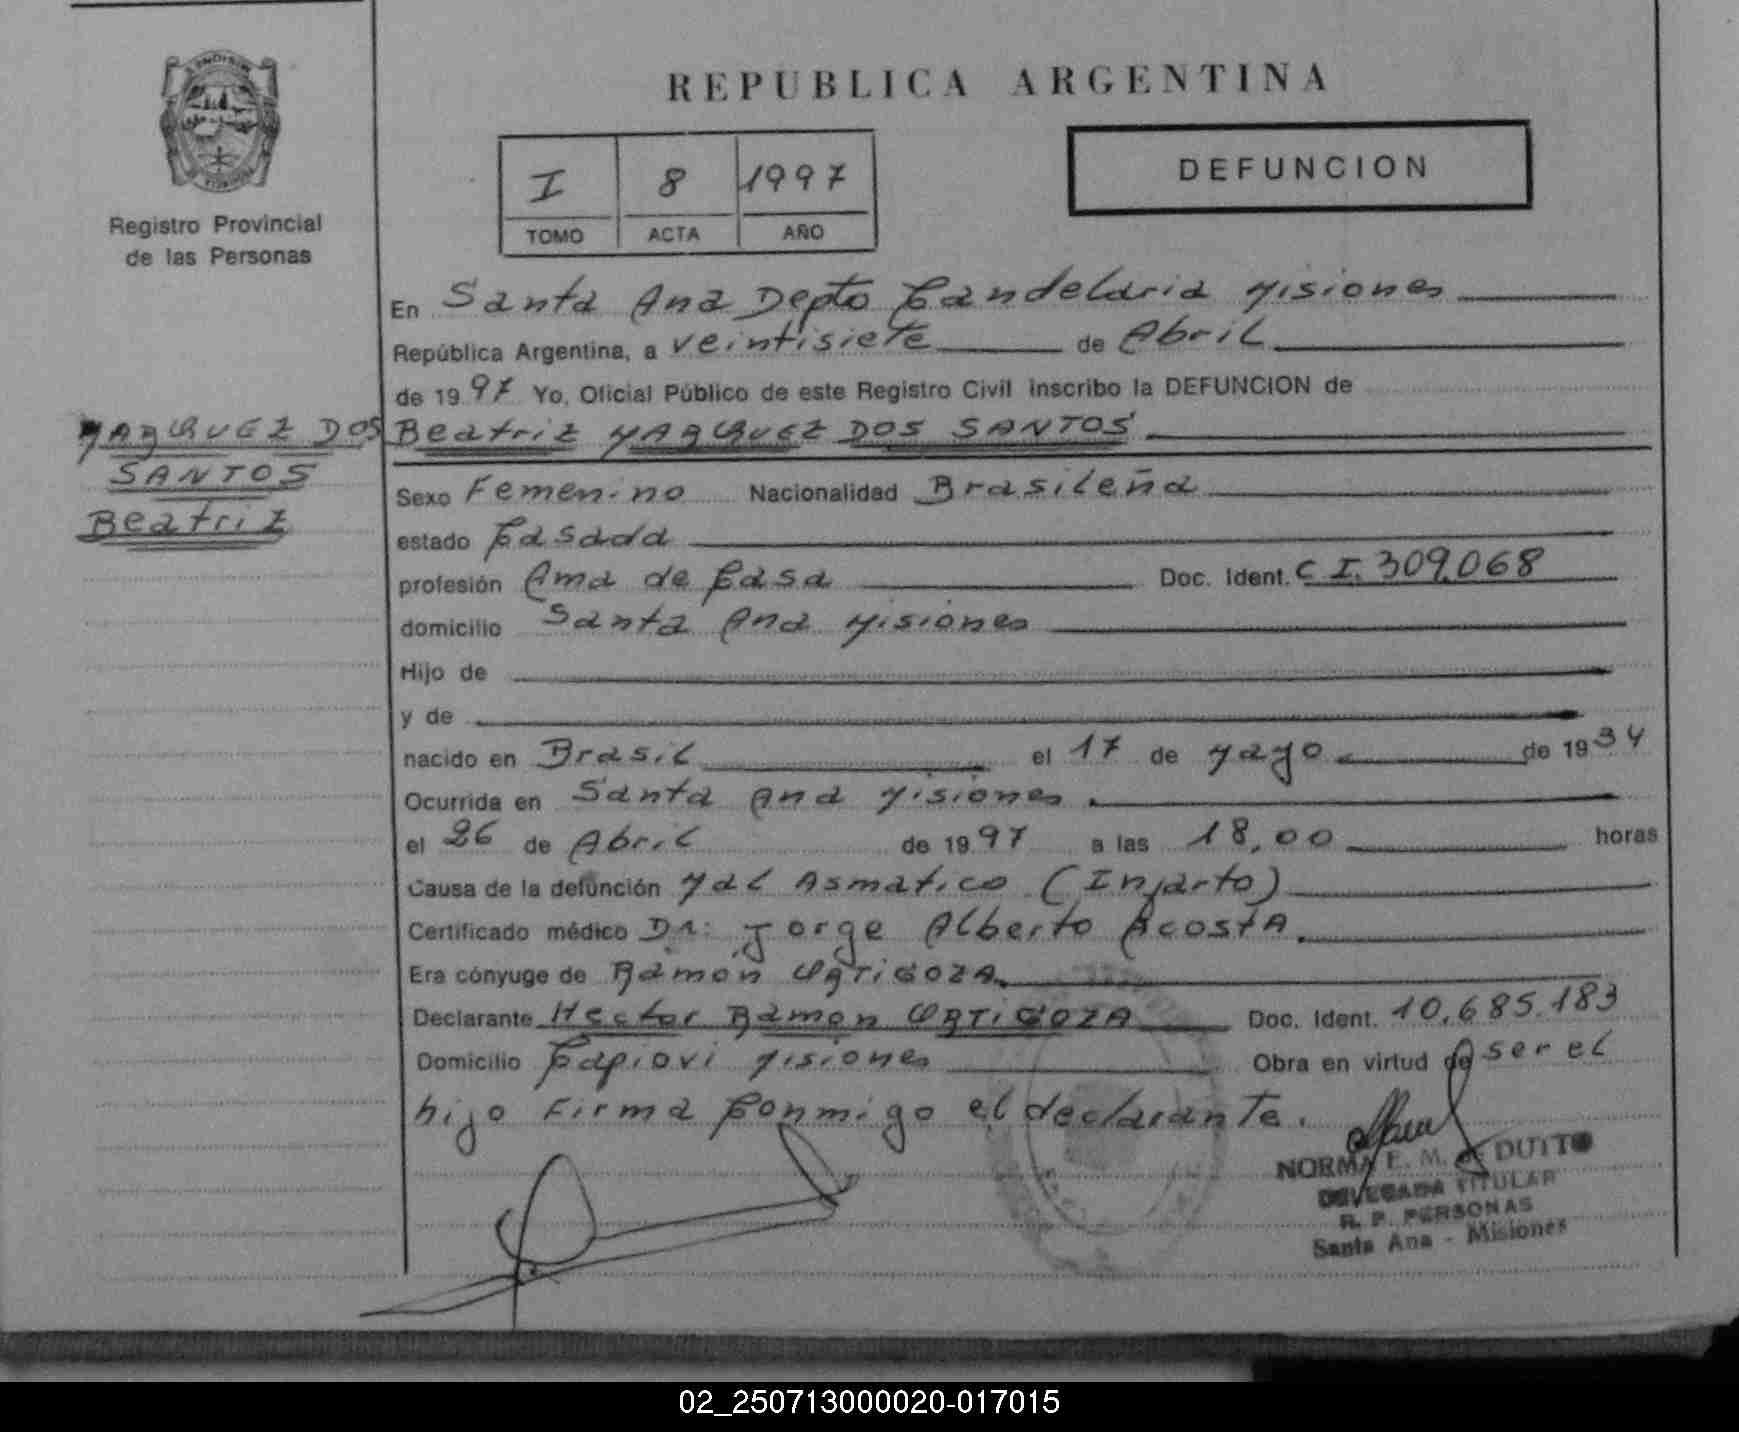 REPUBLICA ARGENTINA
DEFUNCION
I 8 1997
TOMO ACTA AÑO
Registro Provincial
de las Personas
En Santa Ana Depto Candelaria Misiones
República Argentina, a veintisiete de Abril
de 1997 Yo, Oficial Público de este Registro Civil inscribo la DEFUNCION de
MARQUEZ DOS
SANTOS
Beatriz
Beatriz MARQUEZ DOS SANTOS
Sexo Femenino Nacionalidad Brasileña
estado Casada
profesión Ama de Casa Doc. Ident. C I. 309.068
domicilio Santa Ana Misiones
Hijo de
y de
nacido en Brasil el 17 de Mayo de 1934
Ocurrida en Santa Ana Misiones
el 26 de Abril de 1997 a las 18,00 horas
Causa de la defunción Mal Asmatico (Infarto)
Certificado médico Dr: Jorge Alberto Acosta
Era cónyuge de Ramón ORTIGOZA
Declarante Hector Ramon ORTIGOZA Doc. Ident. 10.685.183
Domicilio Capiovi Misiones Obra en virtud de ser el
hijo Firma Conmigo el declarante.
NORMA E. M. de DUTTO
DELEGADA TITULAR
R. P. PERSONAS
Santa Ana - Misiones
02_250713000020-017015